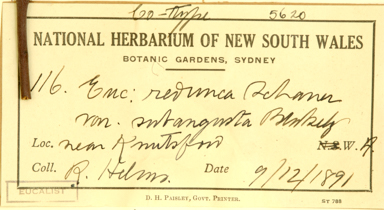 Co-Type 5620
NATIONAL HERBARIUM OF NEW SOUTH WALES
BOTANIC GARDENS, SYDNEY
116. Euc: redunca Schauer
var. subangusta Blakely
Loc. near Knutsford N.S.W. A.
Coll. R. Helms. Date 9/12/1891
EUCALIST
D. H. PAISLEY, GOVT. PRINTER.
ST 788